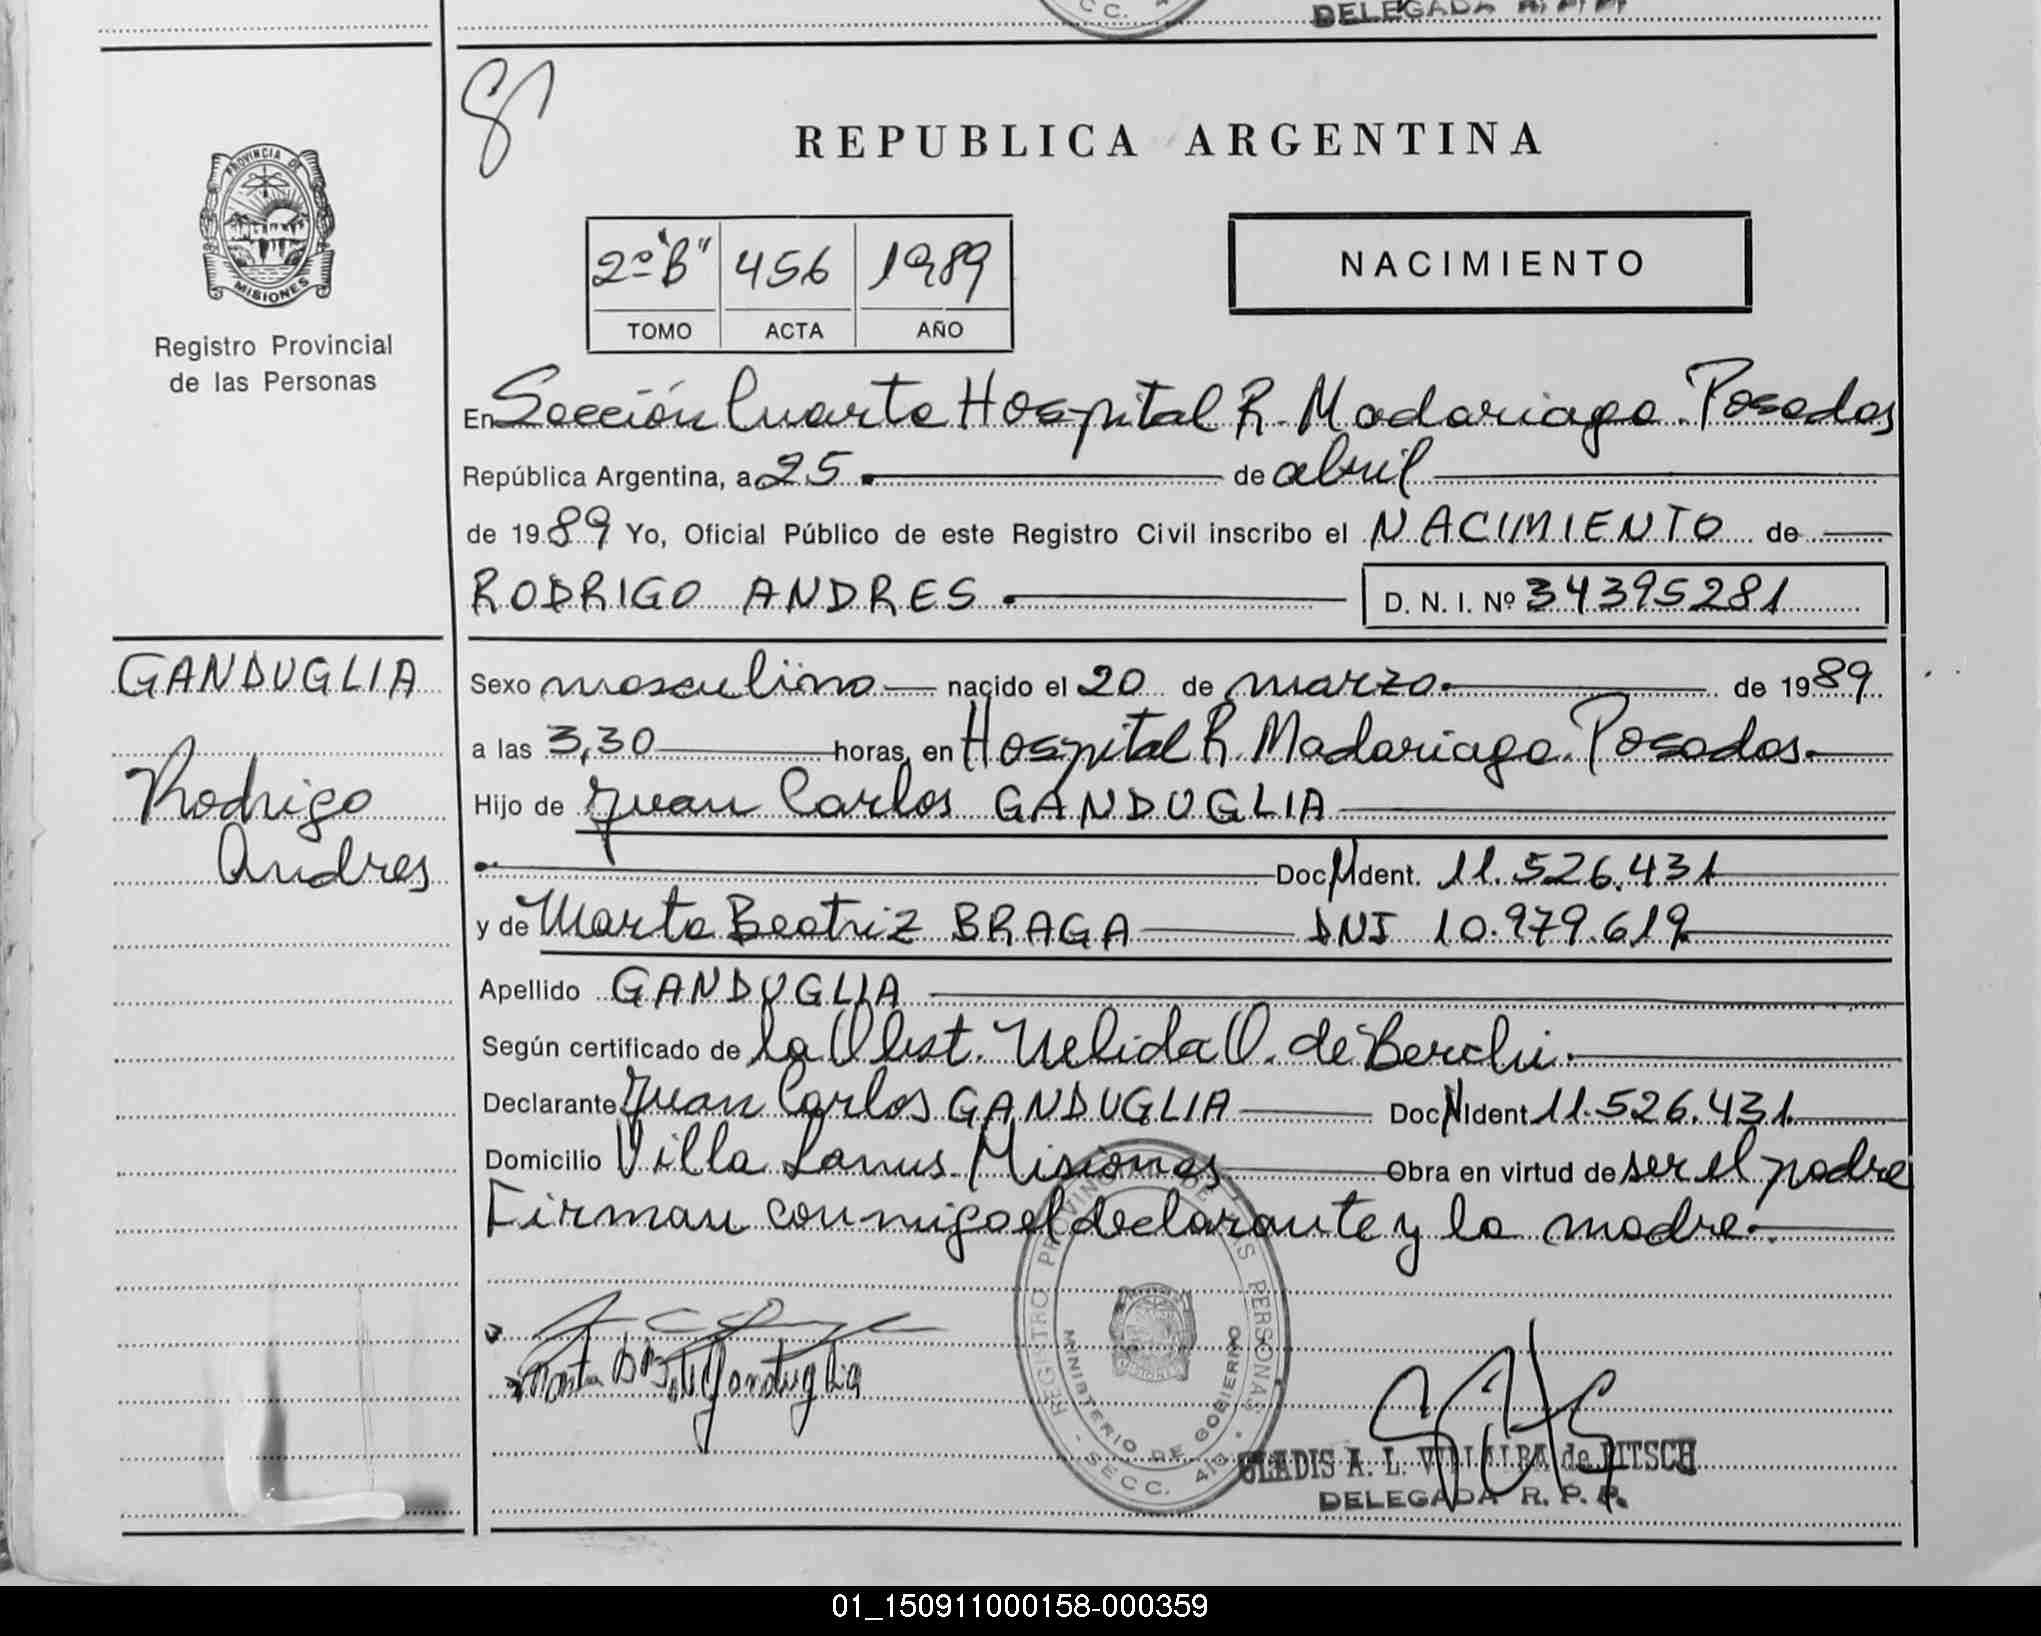 CC. 4
DELEGADA R. P. P.
8
REPUBLICA ARGENTINA
PROVINCIA DE
MISIONES
Registro Provincial
de las Personas
2º "B" 456 1989
TOMO ACTA AÑO
NACIMIENTO
En Sección Cuarta Hospital R. Madariaga. Posadas
República Argentina, a 25 de abril
de 1989 Yo, Oficial Público de este Registro Civil inscribo el NACIMIENTO de
RODRIGO ANDRES D. N. I. Nº 34395281
GANDUGLIA
Rodrigo
Andres
Sexo masculino nacido el 20 de marzo de 1989
a las 3,30 horas, en Hospital R. Madariaga. Posadas.
Hijo de Juan Carlos GANDUGLIA
Doc. Ident. 11.526.431
y de Marta Beatriz BRAGA DNI 10.979.619
Apellido GANDUGLIA
Según certificado de la Obst. Nelida O. de Berchi.
Declarante Juan Carlos GANDUGLIA Doc. Ident 11.526.431
Domicilio Villa Lanus. Misiones Obra en virtud de ser el padre
Firman conmigo el declarante y la madre.
REGISTRO PROVINCIAL DE LAS PERSONAS
MINISTERIO DE GOBIERNO
- SECC. 4ta -
Marta B B de Ganduglia
GLADIS A. L. VILLALBA de PITSCH
DELEGADA R. P. P.
01_150911000158-000359